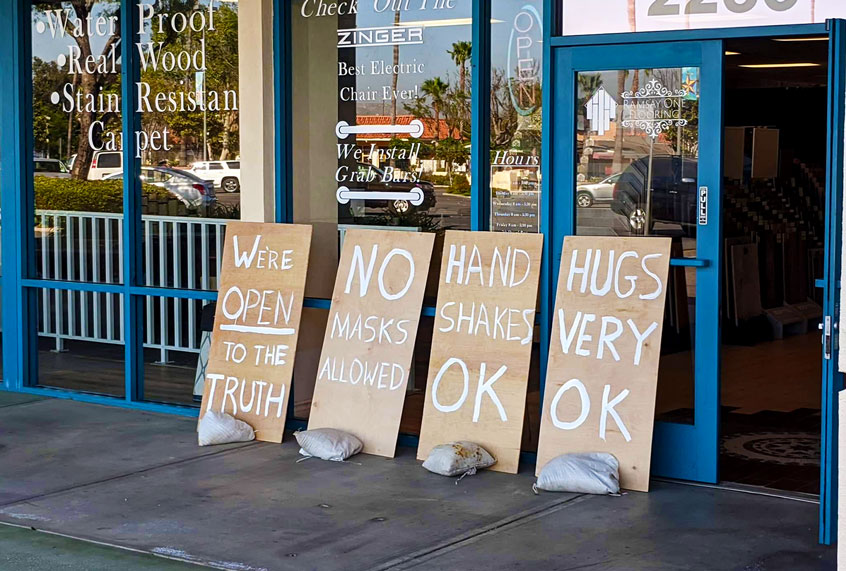 • Water Proof
• Real Wood
• Stain Resistan
Carpet
Check Out The
ZINGER
Best Electric
Chair Ever!
We Install
Grab Bars!
OPEN
Hours
RAMSAY ONE
FLOORING
PULL
WE'RE
OPEN
TO THE
TRUTH
NO
MASKS
ALLOWED
HAND
SHAKES
OK
HUGS
VERY
OK